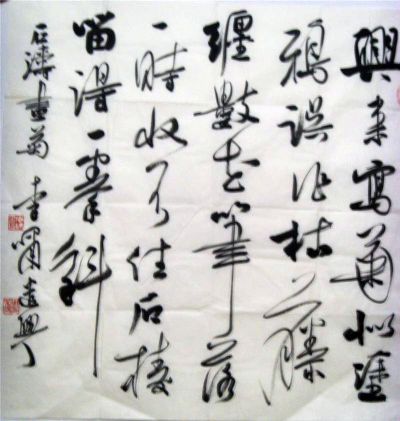 興來寫菊似塗
鴉誤作枯藤
纏數花筆落
一時收不住石棱
留得一拳斜
石濤畫菊 李